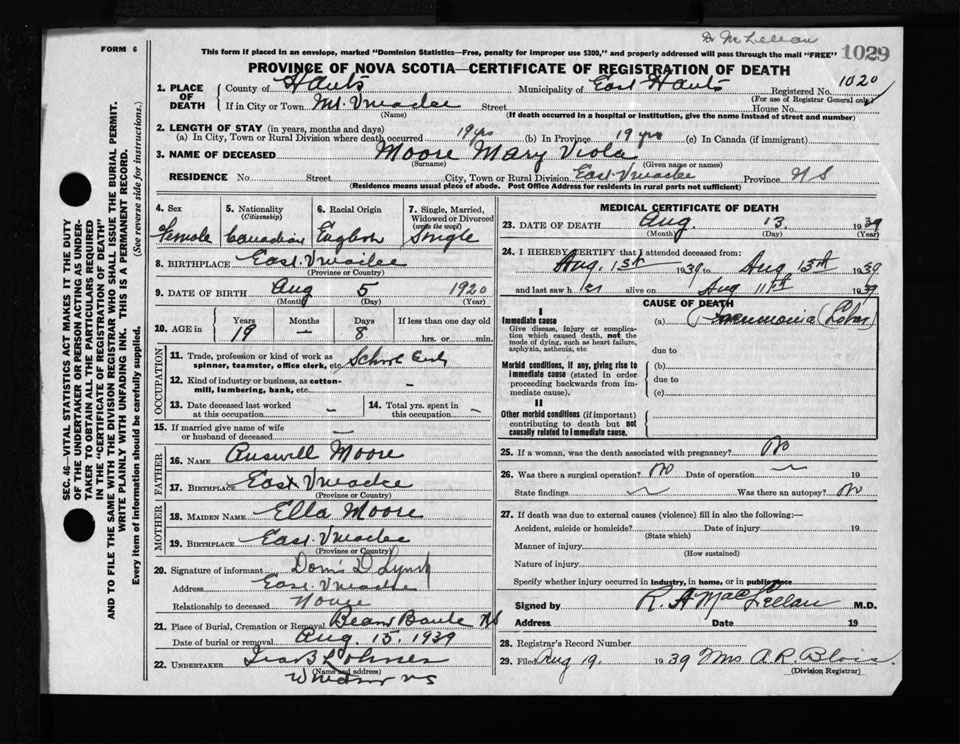 Dr McLellan
FORM 6
This form if placed in an envelope, marked "Dominion Statistics—Free, penalty for improper use $300," and properly addressed will pass through the mail "FREE"
1029
PROVINCE OF NOVA SCOTIA—CERTIFICATE OF REGISTRATION OF DEATH
1. PLACE OF DEATH
County of Hants Municipality of East Hants Registered No. 1020
(For use of Registrar General only)
If in City or Town Mt. Uniacke Street House No.
(Name) (If death occurred in a hospital or institution, give the name instead of street and number)
2. LENGTH OF STAY (in years, months and days)
(a) In City, Town or Rural Division where death occurred 19 yrs (b) In Province 19 yrs (c) In Canada (if immigrant)
3. NAME OF DECEASED Moore Mary Viola
(Surname) (Given name or names)
RESIDENCE No. Street City, Town or Rural Division East Uniacke Province NS
(Residence means usual place of abode. Post Office Address for residents in rural parts not sufficient)
SEC. 46—VITAL STATISTICS ACT MAKES IT THE DUTY
OF THE UNDERTAKER OR PERSON ACTING AS UNDER-
TAKER TO OBTAIN ALL THE PARTICULARS REQUIRED
IN THE "CERTIFICATE OF REGISTRATION OF DEATH"
AND TO FILE THE SAME WITH THE DIVISION REGISTRAR WHO SHALL ISSUE THE BURIAL PERMIT.
WRITE PLAINLY WITH UNFADING INK. THIS IS A PERMANENT RECORD.
Every item of information should be carefully supplied. (See reverse side for instructions.)
4. Sex Female
5. Nationality (Citizenship) Canadian
6. Racial Origin English
7. Single, Married, Widowed or Divorced (write the word) Single
8. BIRTHPLACE East Uniacke
(Province or Country)
9. DATE OF BIRTH Aug 5 1920
(Month) (Day) (Year)
10. AGE in Years 19 Months — Days 8 If less than one day old hrs. or min.
OCCUPATION
11. Trade, profession or kind of work as spinner, teamster, office clerk, etc. School Girl
12. Kind of industry or business, as cotton-mill, lumbering, bank, etc. -
13. Date deceased last worked at this occupation -
14. Total yrs. spent in this occupation -
15. If married give name of wife or husband of deceased —
FATHER
16. NAME Russell Moore
17. BIRTHPLACE East Uniacke
(Province or Country)
MOTHER
18. MAIDEN NAME Ella Moore
19. BIRTHPLACE East Uniacke
(Province or Country)
20. Signature of informant Doris D Lynch
Address East Uniacke
Relationship to deceased
21. Place of Burial, Cremation or Removal NS
Date of burial or removal Aug. 15, 1939
22. UNDERTAKER
(Name and address)
Windsor NS
MEDICAL CERTIFICATE OF DEATH
23. DATE OF DEATH Aug. 13. 1939
(Month) (Day) (Year)
24. I HEREBY CERTIFY that I attended deceased from:
Aug. 1st 1939 to Aug 13th 1939
and last saw her alive on Aug 11th 1939
CAUSE OF DEATH
I
Immediate cause
Give disease, injury or complication which caused death, not the mode of dying, such as heart failure, asphyxia, asthenia, etc.
(a) Pneumonia (Lobar)
due to
Morbid conditions, if any, giving rise to immediate cause (stated in order proceeding backwards from immediate cause).
(b)
due to
(c)
II
Other morbid conditions (if important) contributing to death but not causally related to immediate cause.
25. If a woman, was the death associated with pregnancy? No
26. Was there a surgical operation? No Date of operation 19
State findings Was there an autopsy? No
27. If death was due to external causes (violence) fill in also the following:—
Accident, suicide or homicide? Date of injury 19
(State which)
Manner of injury
(How sustained)
Nature of injury
Specify whether injury occurred in industry, in home, or in public place
Signed by R. A MacLellan M.D.
Address Date 19
28. Registrar's Record Number
29. Filed Aug 19. 1939 Mrs A.R. Blois
(Division Registrar)